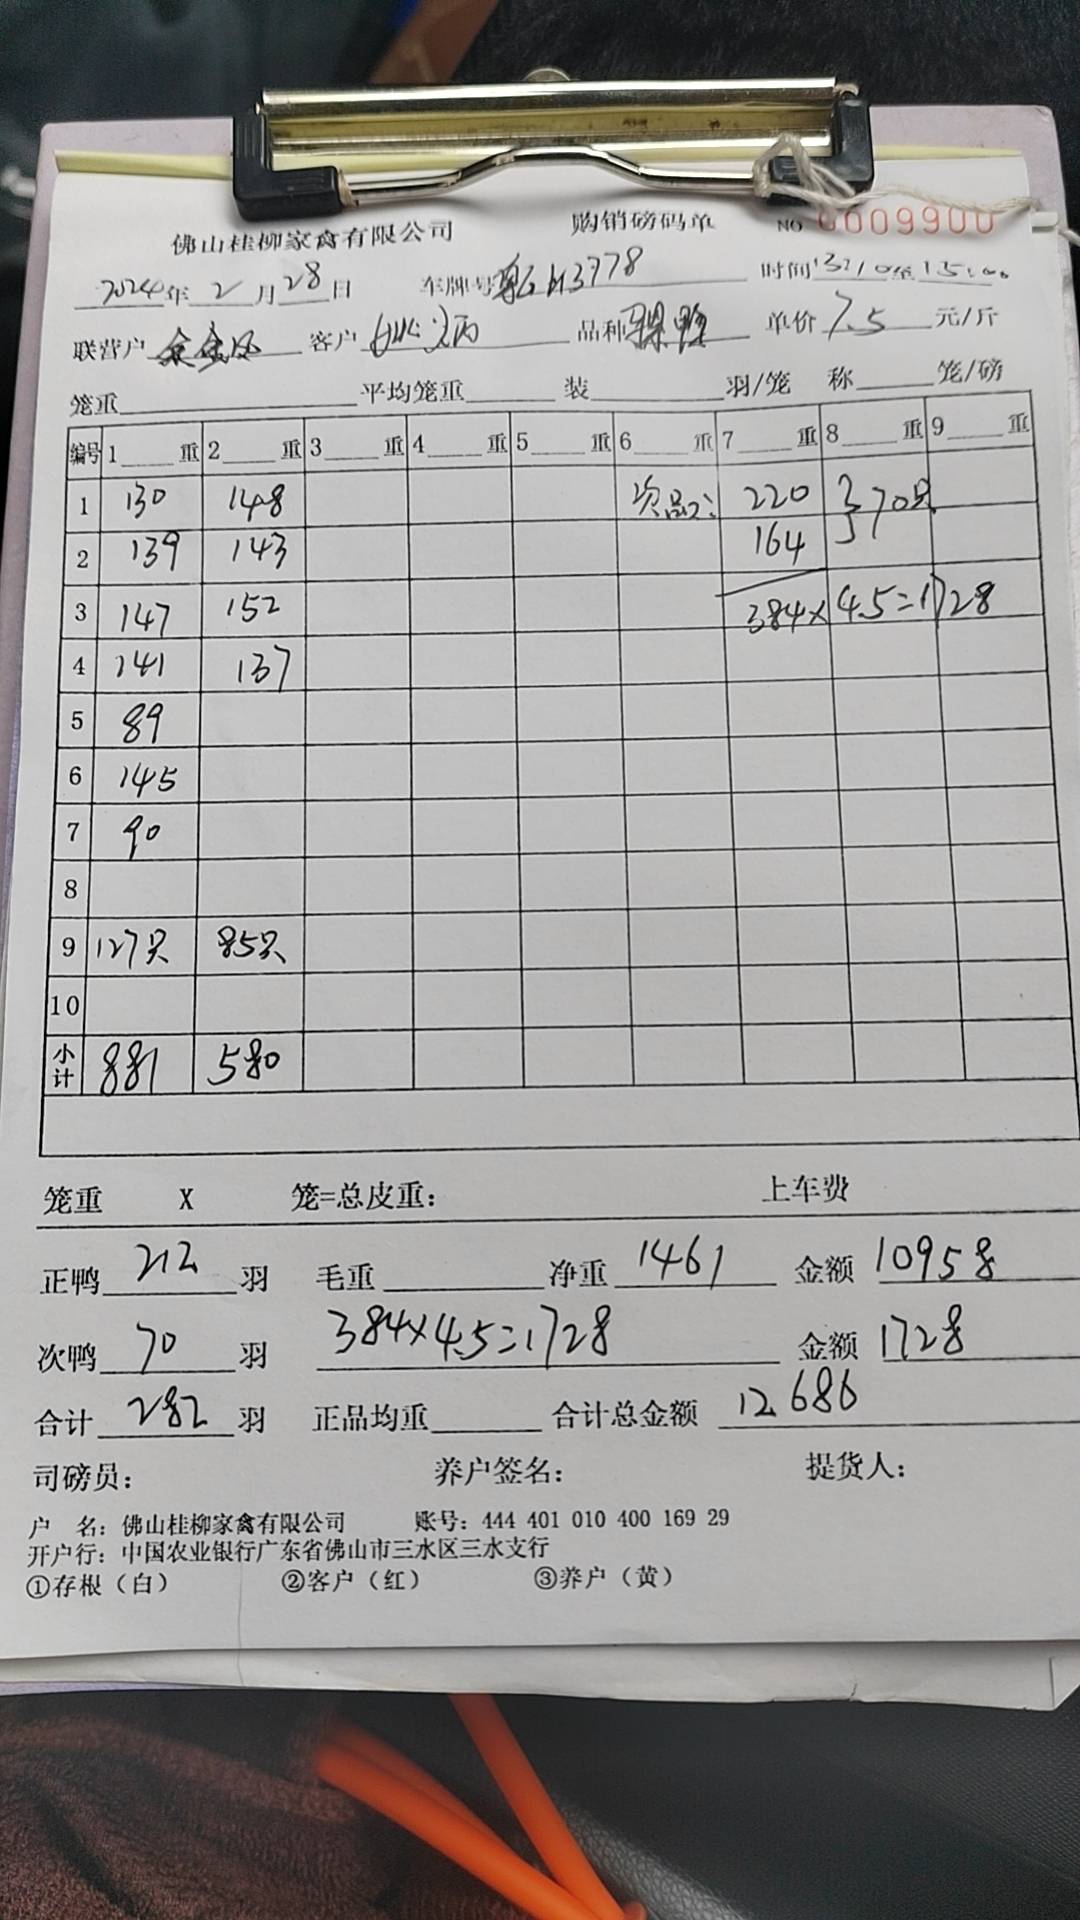 佛山桂柳家禽有限公司 购销磅码单 NO 0009900
2024年2月28日 车牌号 H3778 时间13:10至15:00
联营户 客户 品种骡鸭 单价7.5元/斤
笼重 平均笼重 装 羽/笼 称 笼/磅
编号 1 重 2 重 3 重 4 重 5 重 6 重 7 重 8 重 9 重
1 130 148 次品: 220 } 70只
2 139 143 164
3 147 152 384×4.5=1728
4 141 137
5 89
6 145
7 90
8
9 127只 85只
10
小计 881 580
笼重 X 笼=总皮重: 上车费
正鸭 212 羽 毛重 净重 1461 金额 10958
次鸭 70 羽 384×4.5=1728 金额 1728
合计 282 羽 正品均重 合计总金额 12686
司磅员: 养户签名: 提货人:
户 名: 佛山桂柳家禽有限公司 账号: 444 401 010 400 169 29
开户行: 中国农业银行广东省佛山市三水区三水支行
①存根（白） ②客户（红） ③养户（黄）